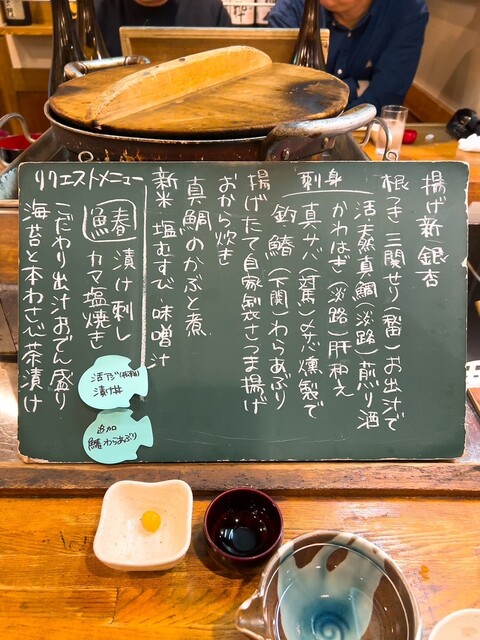 揚げ新銀杏
根つき三関せり お出汁で
刺身
活天然真鯛(淡路)煎り酒
かわはぎ(淡路)肝和え
真サバ(対馬)〆燻製で
釣鰆(下関)わらあぶり
揚げたて自家製さつま揚げ
おから炊き
真鯛のかぶと煮
新米 塩むすび・味噌汁
リクエストメニュー
鰆
漬け刺し
カマ塩焼き
こだわり出汁おでん盛り
海苔と本わさび茶漬け
活アジ
漬け丼
追加
鰆わらあぶり